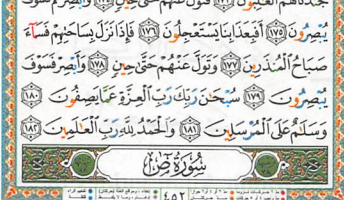 جُندَنَا لَهُمُ الْغَالِبُونَ ١٧٣ فَتَوَلَّ عَنْهُمْ حَتَّىٰ حِينٍ ١٧٤ وَأَبْصِرْهُمْ فَسَوْفَ
يُبْصِرُونَ ١٧٥ أَفَبِعَذَابِنَا يَسْتَعْجِلُونَ ١٧٦ فَإِذَا نَزَلَ بِسَاحَتِهِمْ فَسَاءَ
صَبَاحُ الْمُنذَرِينَ ١٧٧ وَتَوَلَّ عَنْهُمْ حَتَّىٰ حِينٍ ١٧٨ وَأَبْصِرْ فَسَوْفَ
يُبْصِرُونَ ١٧٩ سُبْحَٰنَ رَبِّكَ رَبِّ الْعِزَّةِ عَمَّا يَصِفُونَ ١٨٠
وَسَلَٰمٌ عَلَى الْمُرْسَلِينَ ١٨١ وَالْحَمْدُ لِلَّهِ رَبِّ الْعَٰلَمِينَ ١٨٢
سُورَةُ ص
٤٥٢